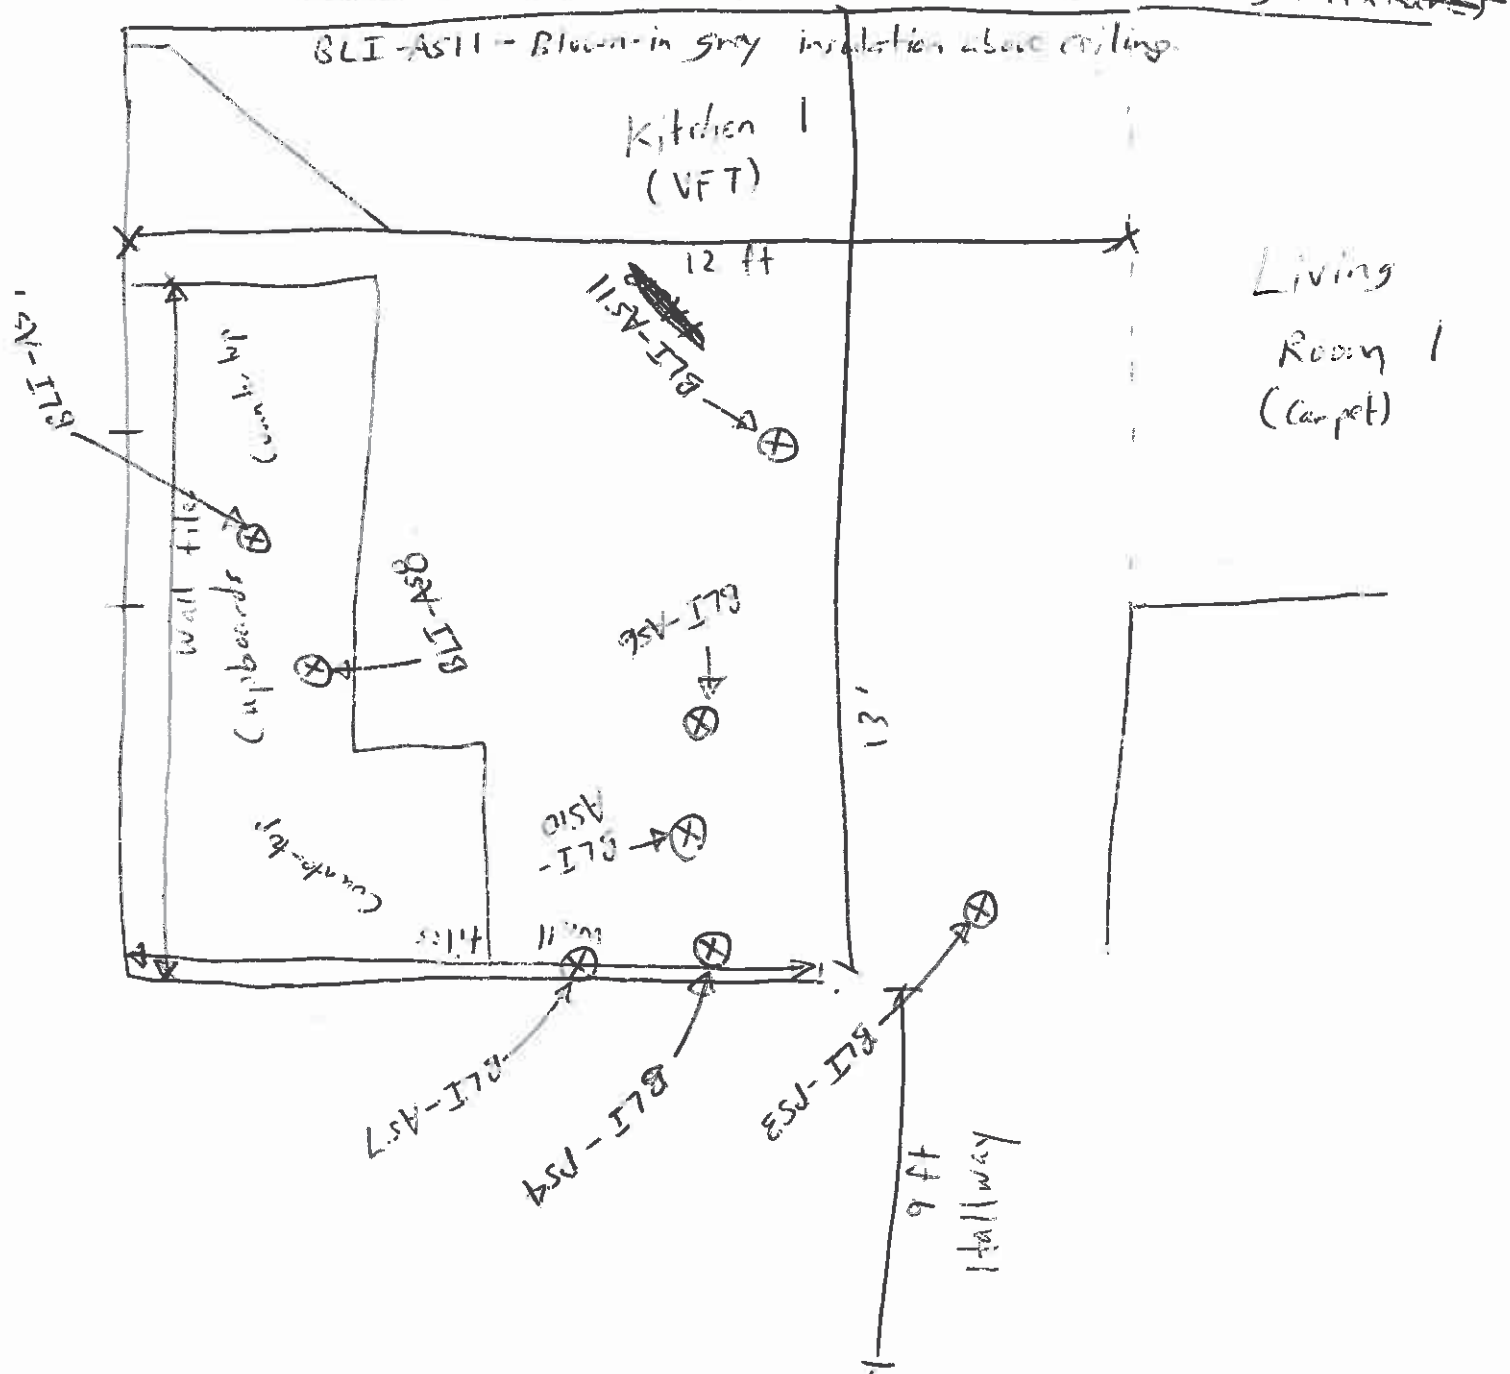 BLI-AS11 - Blown-in grey insulation above ceiling
Kitchen 1
(VFT)
12 ft
Living
Room 1
(Carpet)
BLI-AS11
BLI-AS
Countertop
wall tiles
Cupboards
BLI-AS8
BLI-AS6
13'
BLI-
AS10
Countertop
wall tiles
BLI-AS7
BLI-PS4
BLI-PS3
9 ft
Hallway